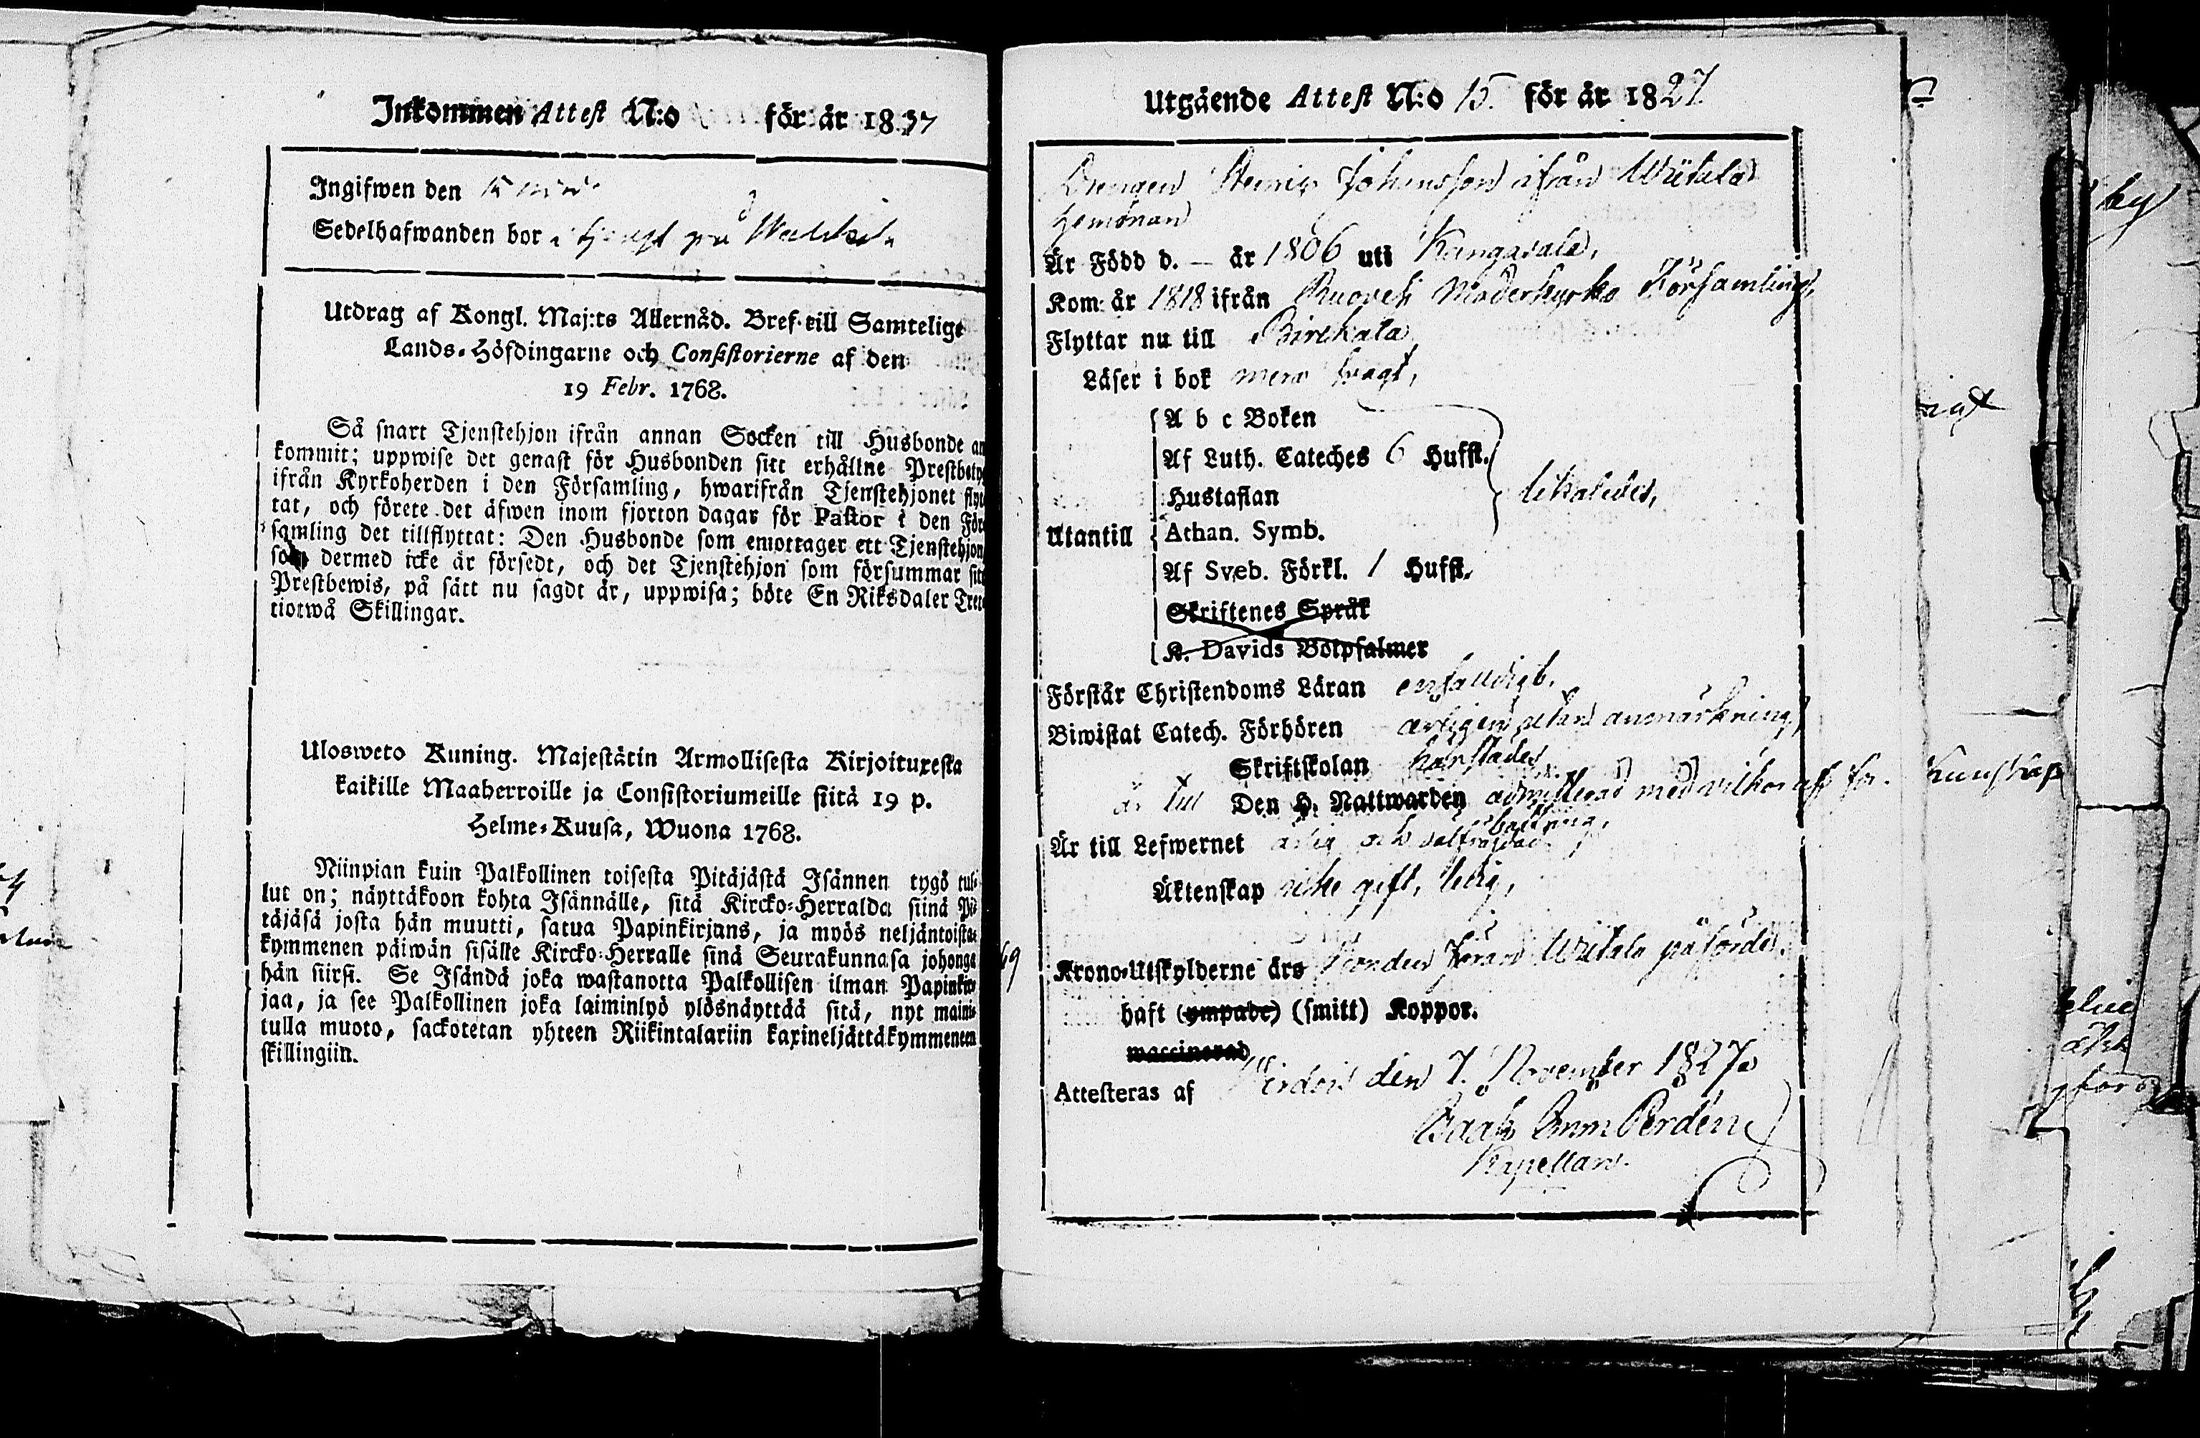 Inkommen Attest N:o för år 1837
Ingifwen den
Sedelhafwanden bor i på
Utdrag af Kongl. Maj:ts Allernåd. Bref till Samtelige
Lands-Höfdingarne och Consistorierne af den
19 Febr. 1768.
Så snart Tjenstehjon ifrån annan Socken till Husbonde an
kommit; uppwise det genast för Husbonden sitt erhållne Prestbety
ifrån Kyrkoherden i den Församling, hwarifrån Tjenstehjonet flyt
tat, och förete det äfwen inom fjorton dagar för Pastor i den För
samling det tillflyttat: Den Husbonde som emottager ett Tjenstehjon
som dermed icke är försedt, och det Tjenstehjon som försummar sitt
Prestbewis, på sätt nu sagdt är, uppwisa; böte En Riksdaler Tret
tiotwå Skillingar.
Ulosweto Kuning. Majestätin Armollisesta Kirjoituxesta
kaikille Maaherroille ja Consistoriumeille siitä 19 p.
Helme-Kuusa, Wuona 1768.
Niinpian kuin Palkollinen toisesta Pitäjästä Isännen tygö tul-
lut on; näyttäkoon kohta Isännälle, sitä Kircko-Herralda siinä Pi
täjäsä josta hän muutti, saatua Papinkirjans, ja myös neljäntoista-
kymmenen päiwän sisälle Kircko-Herralle sinä Seurakunnasa johonga
hän siirsi. Se Isändä joka wastanotta Palkollisen ilman Papinkir
jaa, ja see Palkollinen joka laiminlyö ylösnäyttää sitä, nyt maini-
tulla muoto, sackotetan yhteen Riikintalariin kaxineljättäkymmeneen
skillingiin.
Utgående Attest N:o 15. för år 1827.
Drengen Henric Johansson ifrån Wiitala
hemman
Är Född d. — år 1806 uti Kangasala,
Kom år 1818 ifrån Ruovesi Moderkyrko Församling,
Flyttar nu till Birckala,
Läser i bok swagt,
A b c Boken
Af Luth. Cateches 6 Hufst.
Hustaflan likaledes,
Utantill Athan. Symb.
Af Sveb. Förkl. 1 Hufst.
Skriftenes Språk
K. Davids Botpsalmer
Förstår Christendoms Läran enfaldigt.
Biwistat Catech. Förhören årligen utan anmärkning,
Skriftskolan härstädes
är till Den H. Nattwarden admitterad med vilkor af för- Kunskap
bättring,
Är till Lefwernet ärlig och välfräjdad
Äktenskap icke gift, ledig,
Krono-Utskylderne äro Wiitala påförde,
haft (ympade) (smitt) Koppor.
waccinerad
Attesteras af Wirdois den 7. November 1827.
Isaak Emm Perdén
Kapellan.